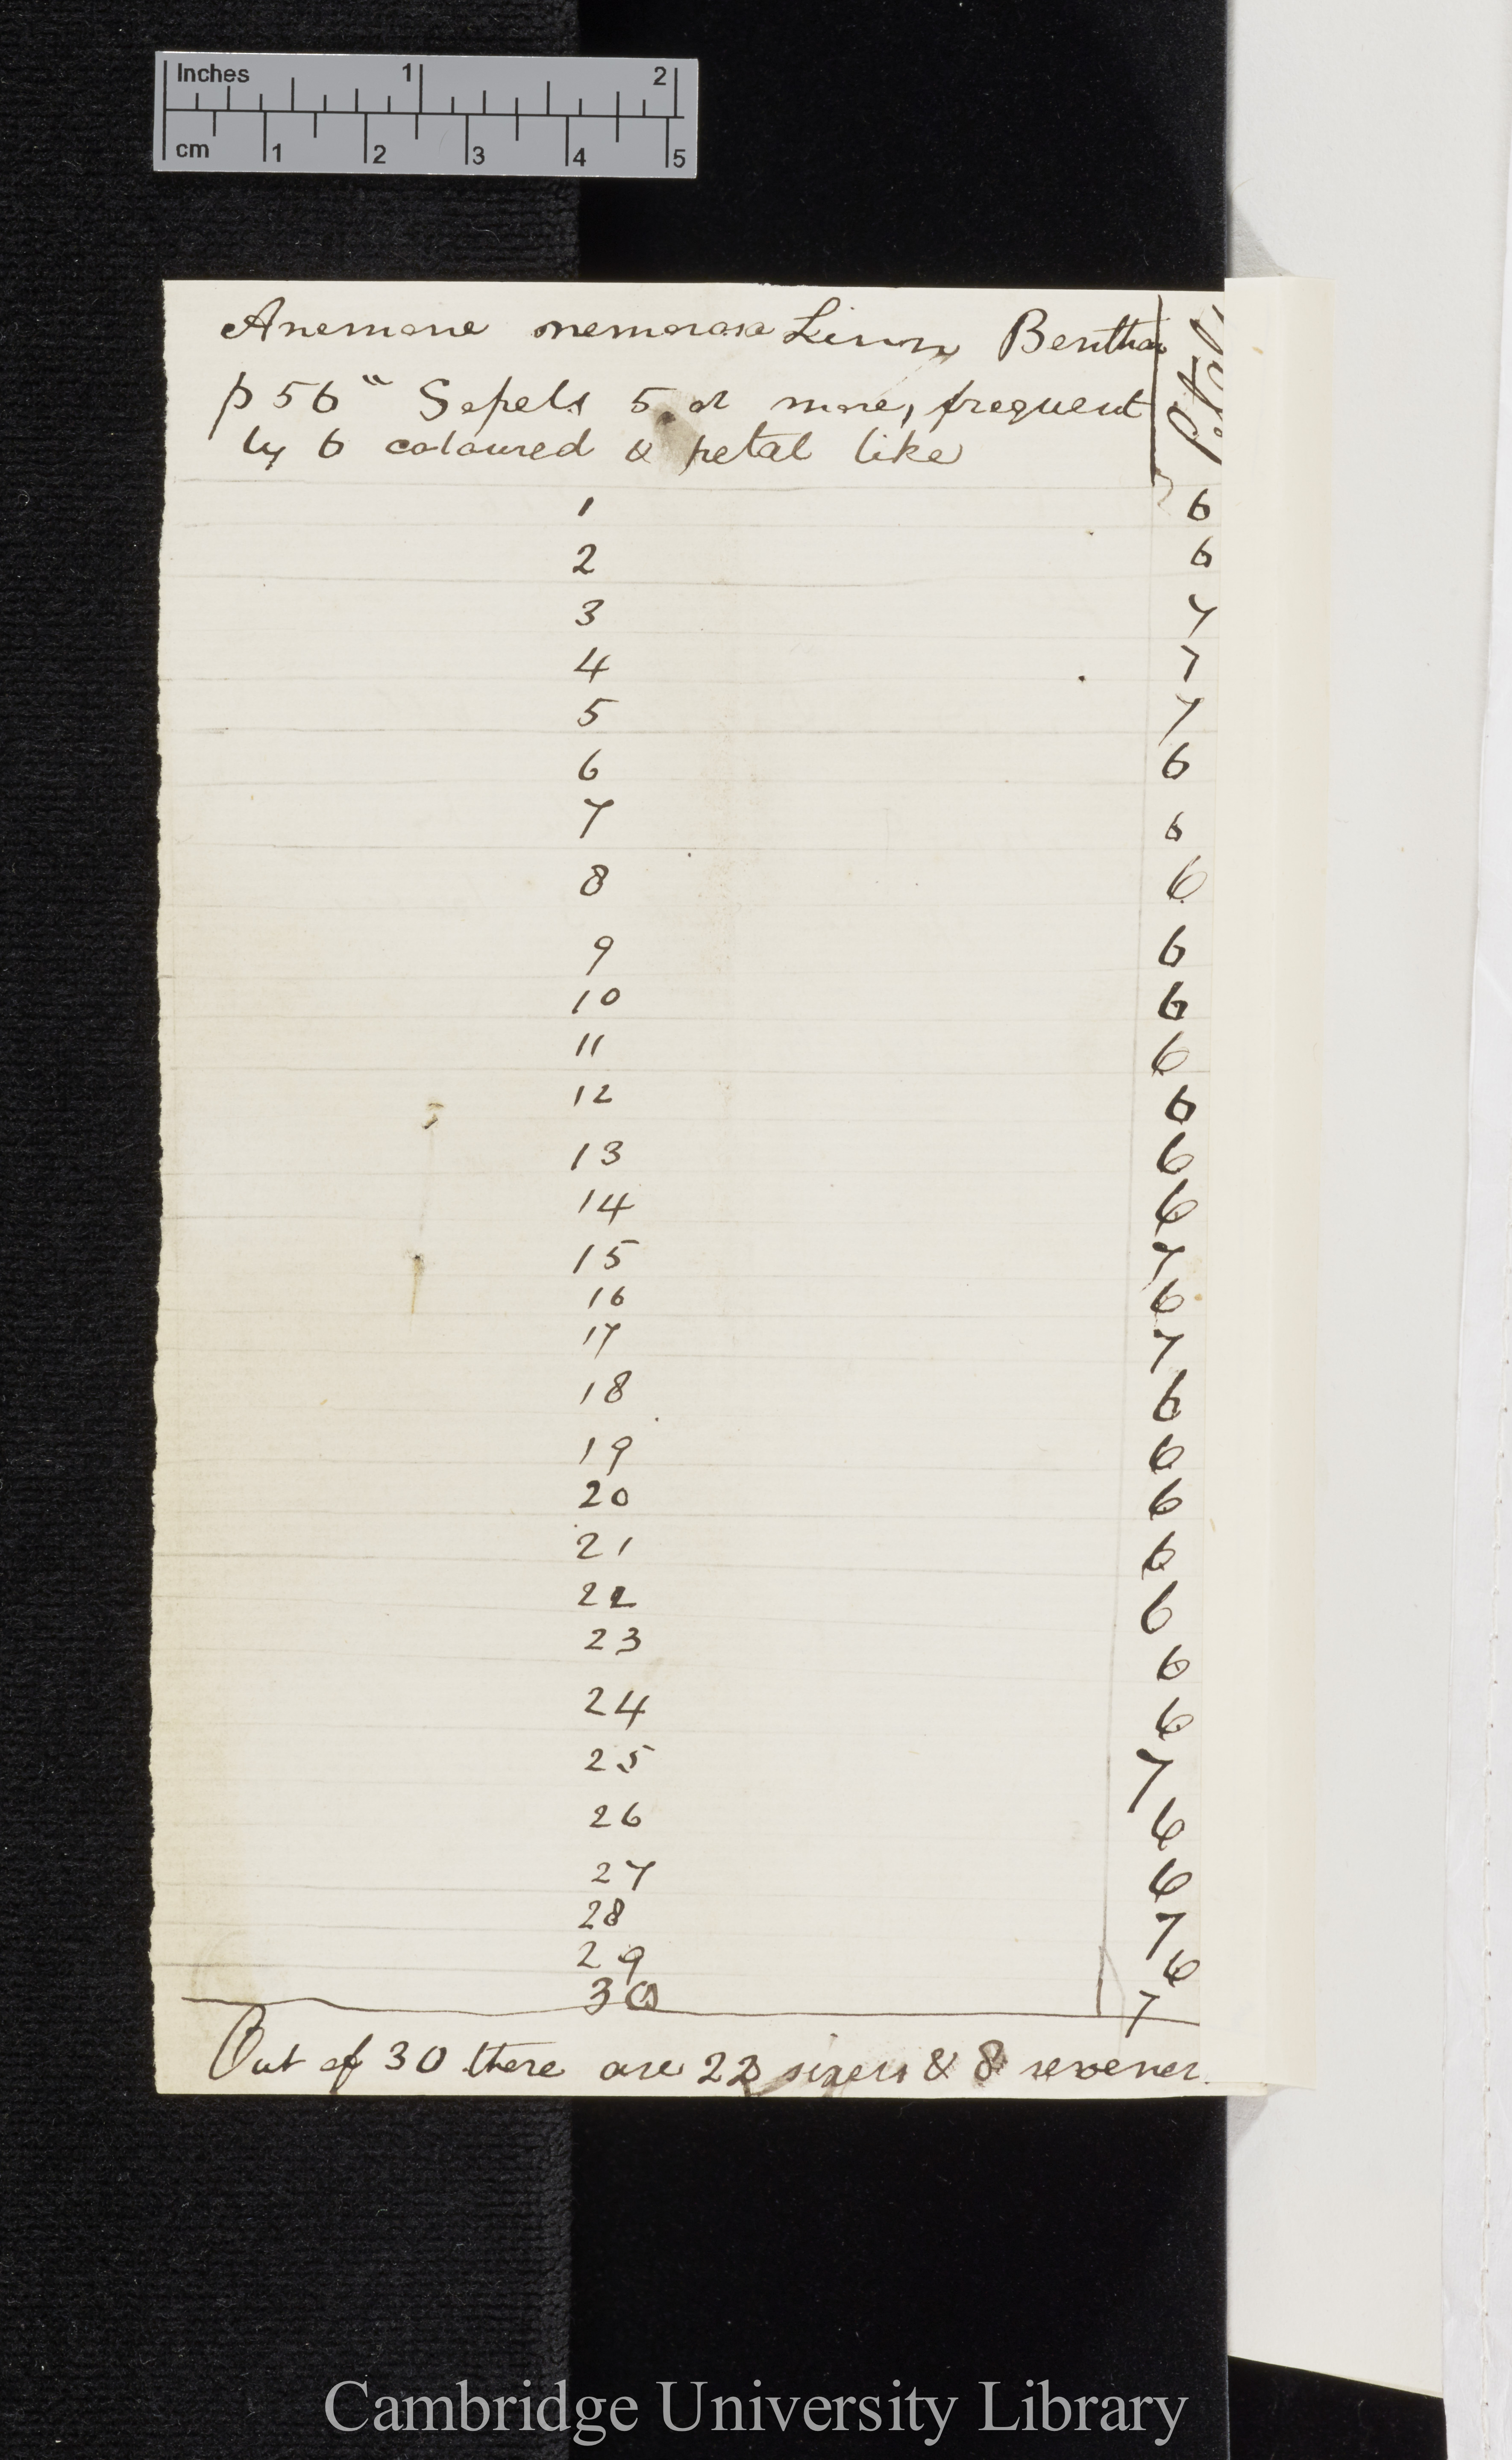 Inches 1 2
cm 1 2 3 4 5
Anemone nemorosa Linn Bentha
p 56 " Sepels 5 or more, frequent
ly 6 coloured & petal like
Petals
1 6
2 6
3 7
4 7
5 7
6 6
7 6
8 6
9 6
10 6
11 6
12 6
13 6
14 6
15 7
16 6
17 7
18 6
19 6
20 6
21 6
22 6
23 6
24 6
25 7
26 6
27 6
28 7
29 6
30 7
Out of 30 there are 22 sixers & 8 sevener.
Cambridge University Library